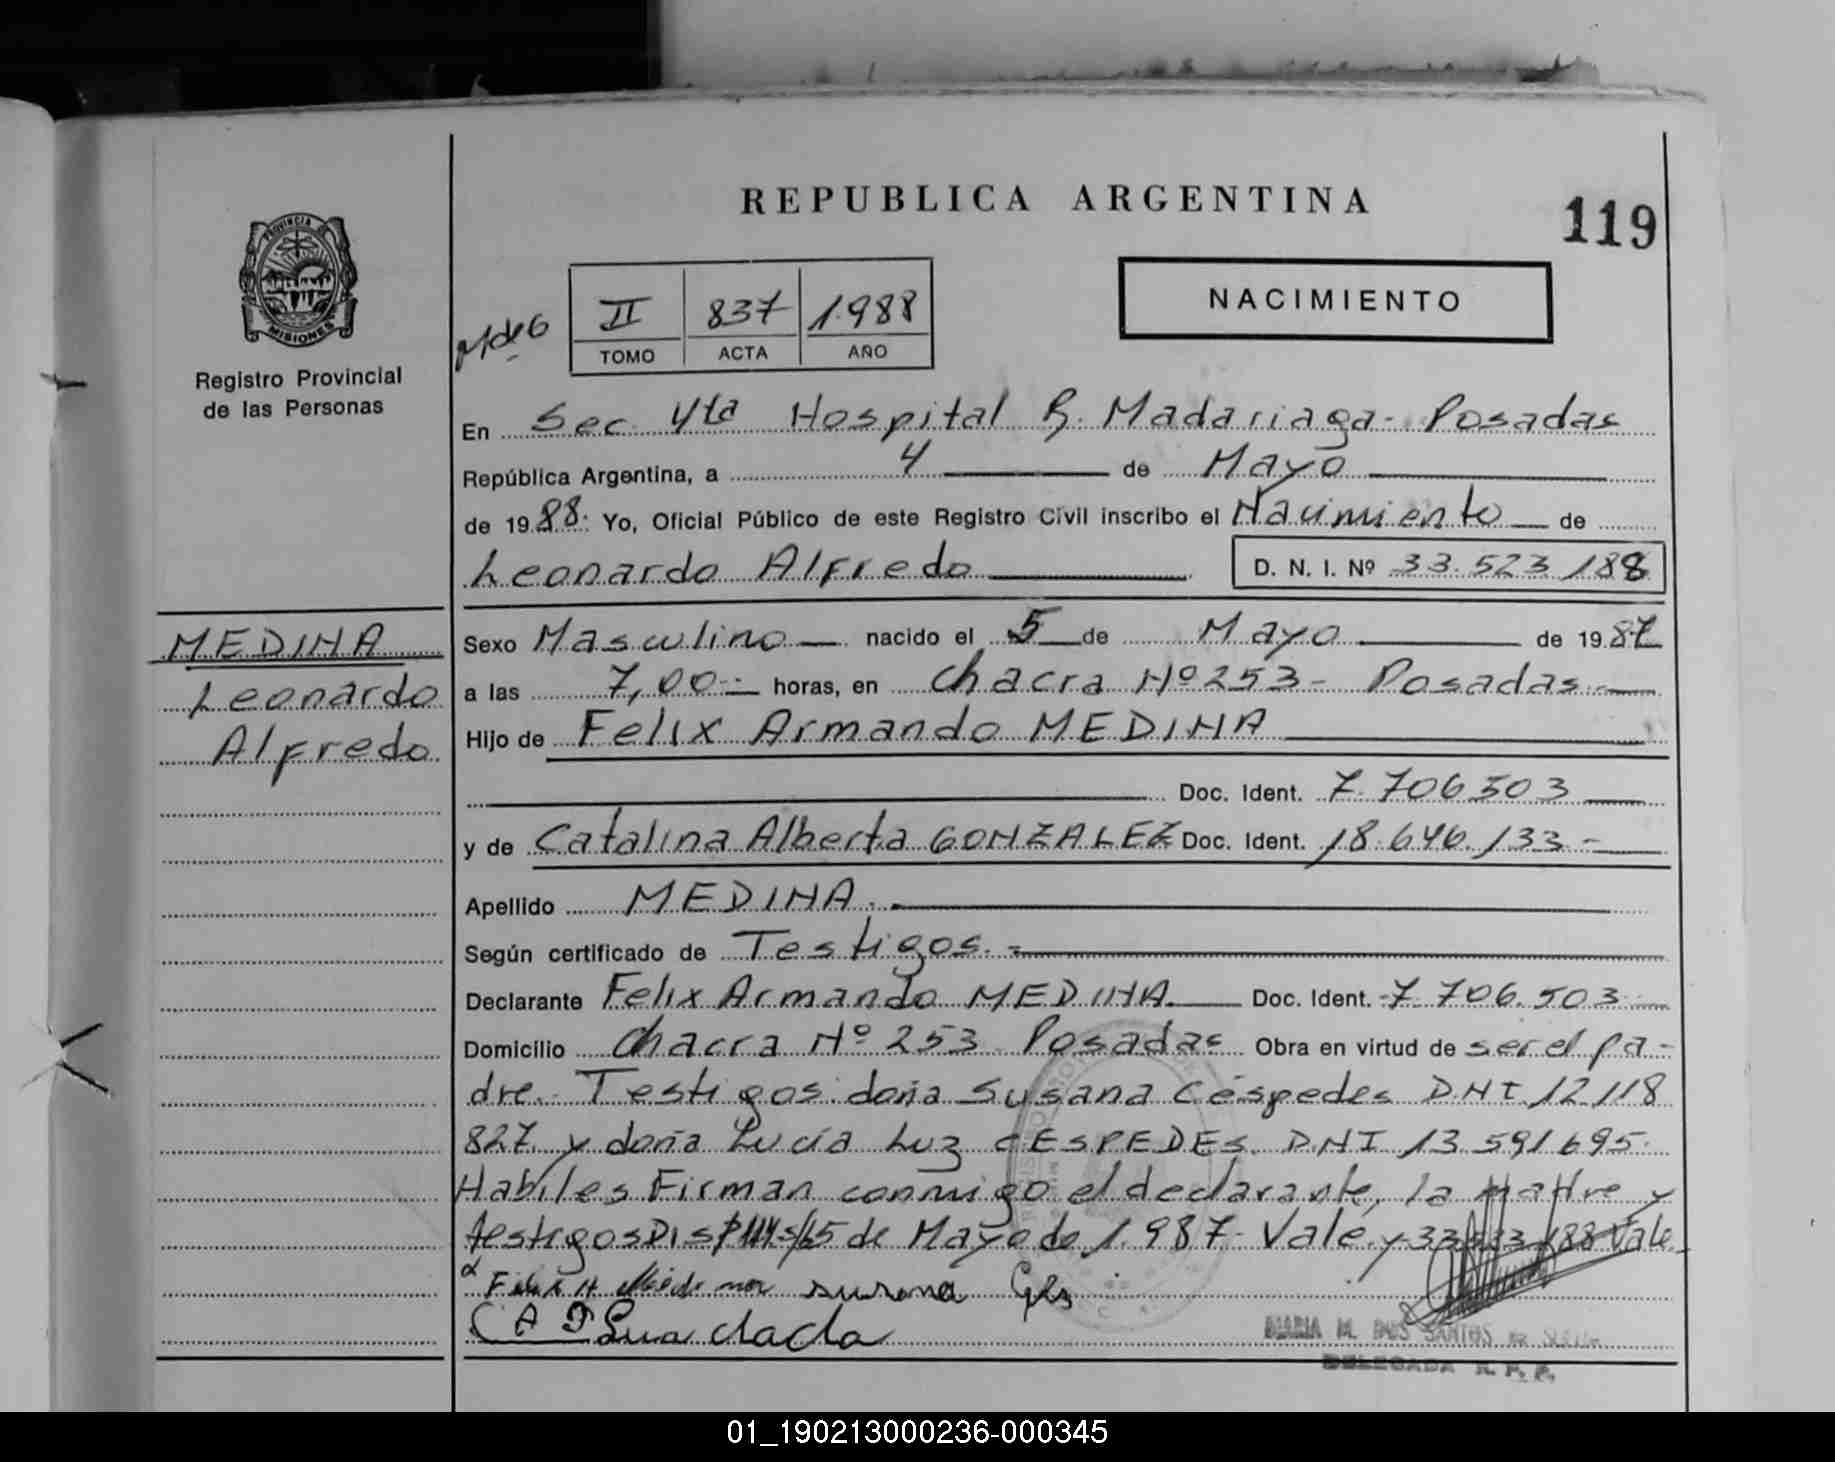 REPUBLICA ARGENTINA
119
PROVINCIA DE
MISIONES
Registro Provincial
de las Personas
II 837 1.988
TOMO ACTA AÑO
NACIMIENTO
En Sec. 4ta Hospital R. Madariaga - Posadas
República Argentina, a 4 de Mayo
de 1988. Yo, Oficial Público de este Registro Civil inscribo el Nacimiento de
Leonardo Alfredo D. N. I. Nº 33.523.188
MEDINA
Leonardo
Alfredo
Sexo Masculino nacido el 5 de Mayo de 1987
a las 7,00 - horas, en Chacra Nº 253 - Posadas.-
Hijo de Felix Armando MEDINA
Doc. Ident. 7.706.503
y de Catalina Alberta GONZALEZ Doc. Ident. 18.646.133 -
Apellido MEDINA.
Según certificado de Testigos.-
Declarante Felix Armando MEDINA Doc. Ident. 7.706.503
Domicilio Chacra Nº 253 Posadas Obra en virtud de ser el pa-
dre.- Testigos: doña Susana Céspedes D.N.I. 12.118
827. y doña Lucía Luz CESPEDES. D.N.I 13.591.695.
Habiles Firman conmigo el declarante, la madre y
testigos 5 de Mayo de 1.987 - Vale. y 33.523.188 Vale
susana
MARIA M. DOS SANTOS
DELEGADA R. P. P.
01_190213000236-000345